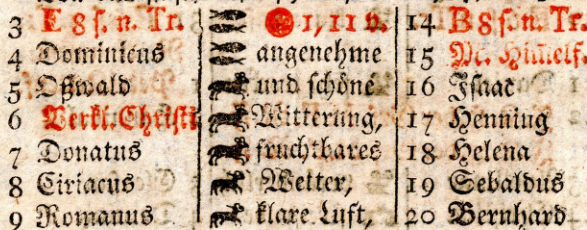 3 E 8 ſ. n. Tr. 1, 11 v. 14 B 8 ſ. n. Tr.
4 Dominicus angenehme 15 M. Himelf.
5 Oßwald und ſchöne 16 Iſaac
6 Verkl. Chriſti Witterung, 17 Henning
7 Donatus fruchtbares 18 Helena
8 Ciriacus Wetter, 19 Sebaldus
9 Romanus klare Luft, 20 Bernhard